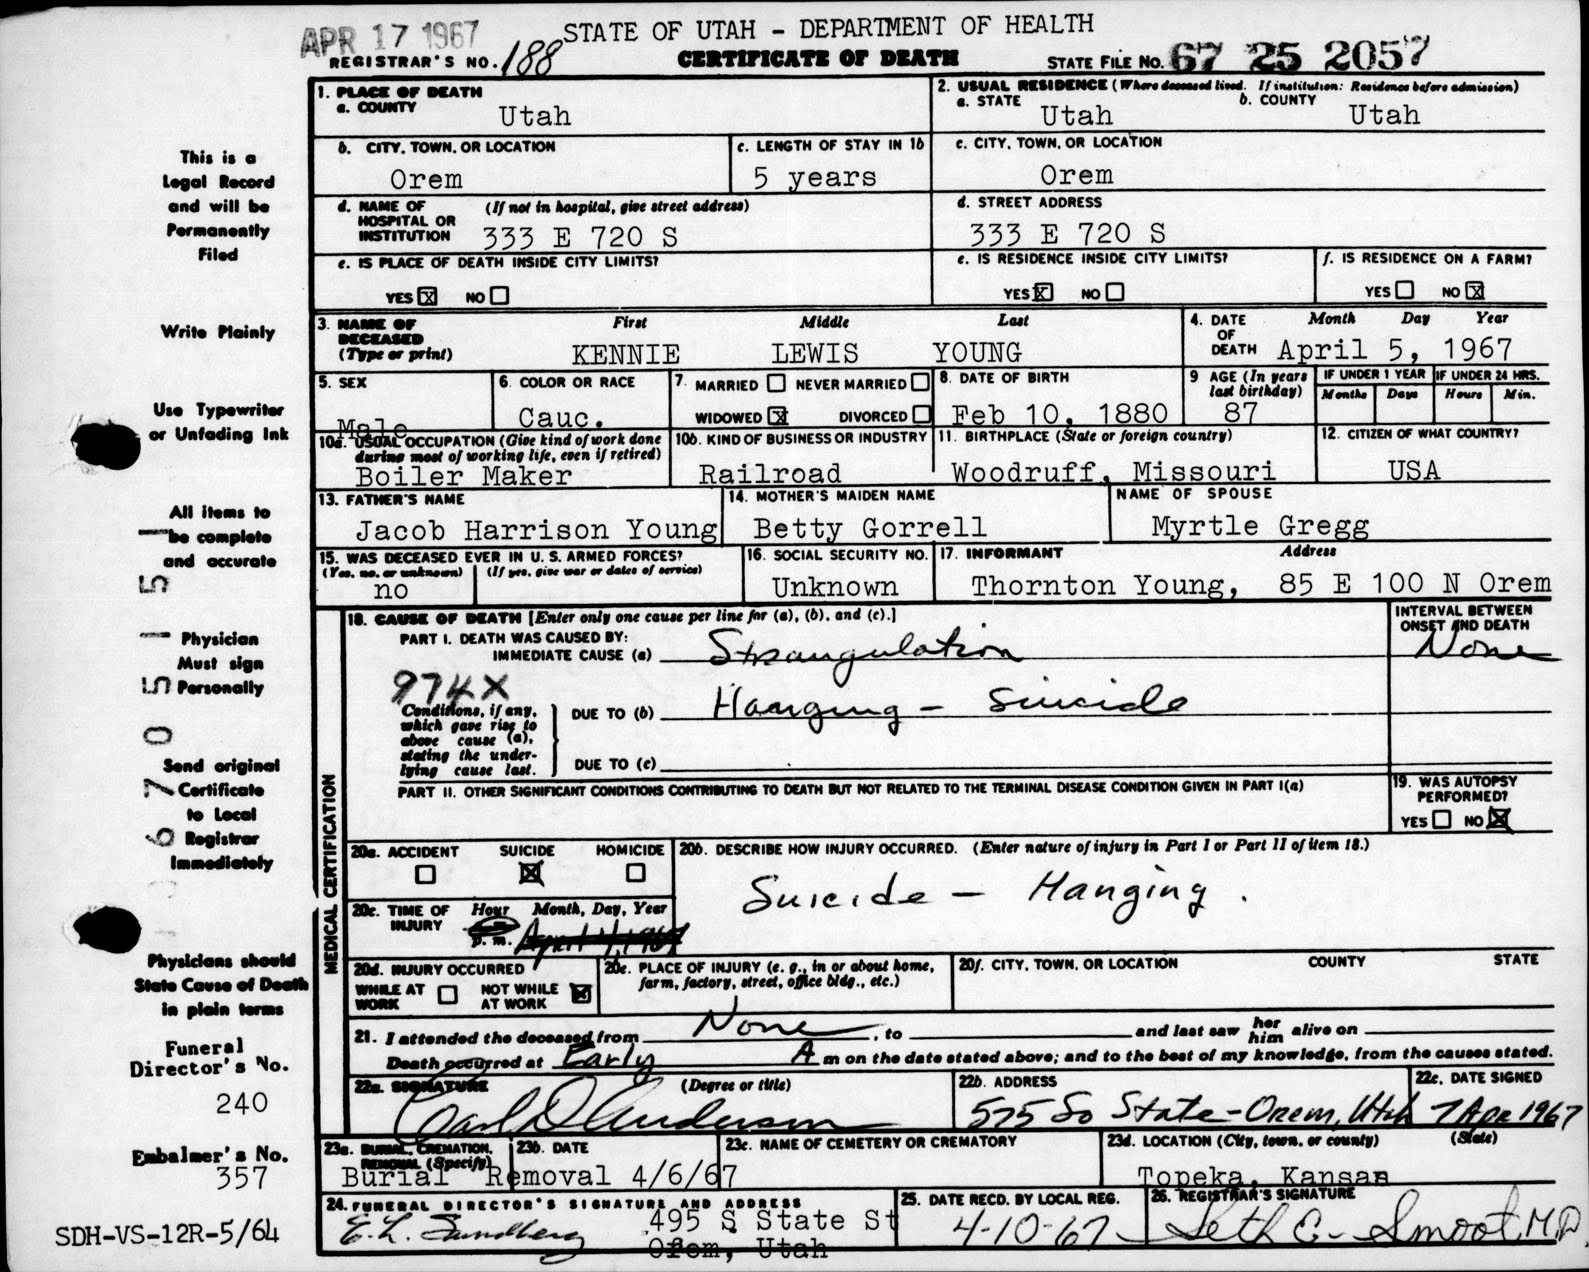 APR 17 1967
STATE OF UTAH - DEPARTMENT OF HEALTH
REGISTRAR'S NO. 188 CERTIFICATE OF DEATH STATE FILE NO. 67 25 2057
1. PLACE OF DEATH
a. COUNTY
Utah
2. USUAL RESIDENCE (Where deceased lived. If institution: Residence before admission)
a. STATE b. COUNTY
Utah Utah
b. CITY, TOWN, OR LOCATION
Orem
c. LENGTH OF STAY IN 1b
5 years
c. CITY, TOWN, OR LOCATION
Orem
d. NAME OF HOSPITAL OR INSTITUTION (If not in hospital, give street address)
333 E 720 S
d. STREET ADDRESS
333 E 720 S
e. IS PLACE OF DEATH INSIDE CITY LIMITS?
YES X NO
e. IS RESIDENCE INSIDE CITY LIMITS?
YES X NO
f. IS RESIDENCE ON A FARM?
YES NO X
3. NAME OF DECEASED (Type or print)
First Middle Last
KENNIE LEWIS YOUNG
4. DATE OF DEATH
Month Day Year
April 5, 1967
5. SEX
Male
6. COLOR OR RACE
Cauc.
7. MARRIED NEVER MARRIED
WIDOWED X DIVORCED
8. DATE OF BIRTH
Feb 10, 1880
9 AGE (In years last birthday)
87
IF UNDER 1 YEAR IF UNDER 24 HRS.
Months Days Hours Min.
10a. USUAL OCCUPATION (Give kind of work done
during most of working life, even if retired)
Boiler Maker
10b. KIND OF BUSINESS OR INDUSTRY
Railroad
11. BIRTHPLACE (State or foreign country)
Woodruff, Missouri
12. CITIZEN OF WHAT COUNTRY?
USA
13. FATHER'S NAME
Jacob Harrison Young
14. MOTHER'S MAIDEN NAME
Betty Gorrell
NAME OF SPOUSE
Myrtle Gregg
15. WAS DECEASED EVER IN U.S. ARMED FORCES?
(Yes, no, or unknown) (If yes, give war or dates of service)
no
16. SOCIAL SECURITY NO.
Unknown
17. INFORMANT Address
Thornton Young, 85 E 100 N Orem
18. CAUSE OF DEATH [Enter only one cause per line for (a), (b), and (c).]
PART I. DEATH WAS CAUSED BY:
IMMEDIATE CAUSE (a) Strangulation
INTERVAL BETWEEN ONSET AND DEATH
None
974X
Conditions, if any,
which gave rise to
above cause (a),
stating the under-
lying cause last.
DUE TO (b) Hanging - Suicide
DUE TO (c)
PART II. OTHER SIGNIFICANT CONDITIONS CONTRIBUTING TO DEATH BUT NOT RELATED TO THE TERMINAL DISEASE CONDITION GIVEN IN PART I(a)
19. WAS AUTOPSY PERFORMED?
YES NO X
MEDICAL CERTIFICATION
20a. ACCIDENT SUICIDE HOMICIDE
X
20b. DESCRIBE HOW INJURY OCCURRED. (Enter nature of injury in Part I or Part II of item 18.)
Suicide - Hanging.
20c. TIME OF INJURY
Hour Month, Day, Year
p. m. April 4, 1967
20d. INJURY OCCURRED
WHILE AT WORK NOT WHILE AT WORK X
20e. PLACE OF INJURY (e. g., in or about home,
farm, factory, street, office bldg., etc.)
20f. CITY, TOWN, OR LOCATION COUNTY STATE
21. I attended the deceased from None, to and last saw her him alive on
Death occurred at Early A m on the date stated above; and to the best of my knowledge, from the causes stated.
22a. SIGNATURE (Degree or title)
Carl D Anderson
22b. ADDRESS
575 So State - Orem, Utah
22c. DATE SIGNED
7 Apr 1967
23a. BURIAL, CREMATION, REMOVAL (Specify)
Burial Removal
23b. DATE
4/6/67
23c. NAME OF CEMETERY OR CREMATORY
23d. LOCATION (City, town, or county) (State)
Topeka, Kansas
24. FUNERAL DIRECTOR'S SIGNATURE AND ADDRESS
E. L. Sundberg 495 S State St
Orem, Utah
25. DATE RECD. BY LOCAL REG.
4-10-67
26. REGISTRAR'S SIGNATURE
Seth E. Smoot, M.D.
This is a
Legal Record
and will be
Permanently
Filed
Write Plainly
Use Typewriter
or Unfading Ink
All items to
be complete
and accurate
Physician
Must sign
Personally
Send original
Certificate
to Local
Registrar
Immediately
Physicians should
State Cause of Death
in plain terms
Funeral
Director's No.
240
Embalmer's No.
357
SDH-VS-12R-5/64